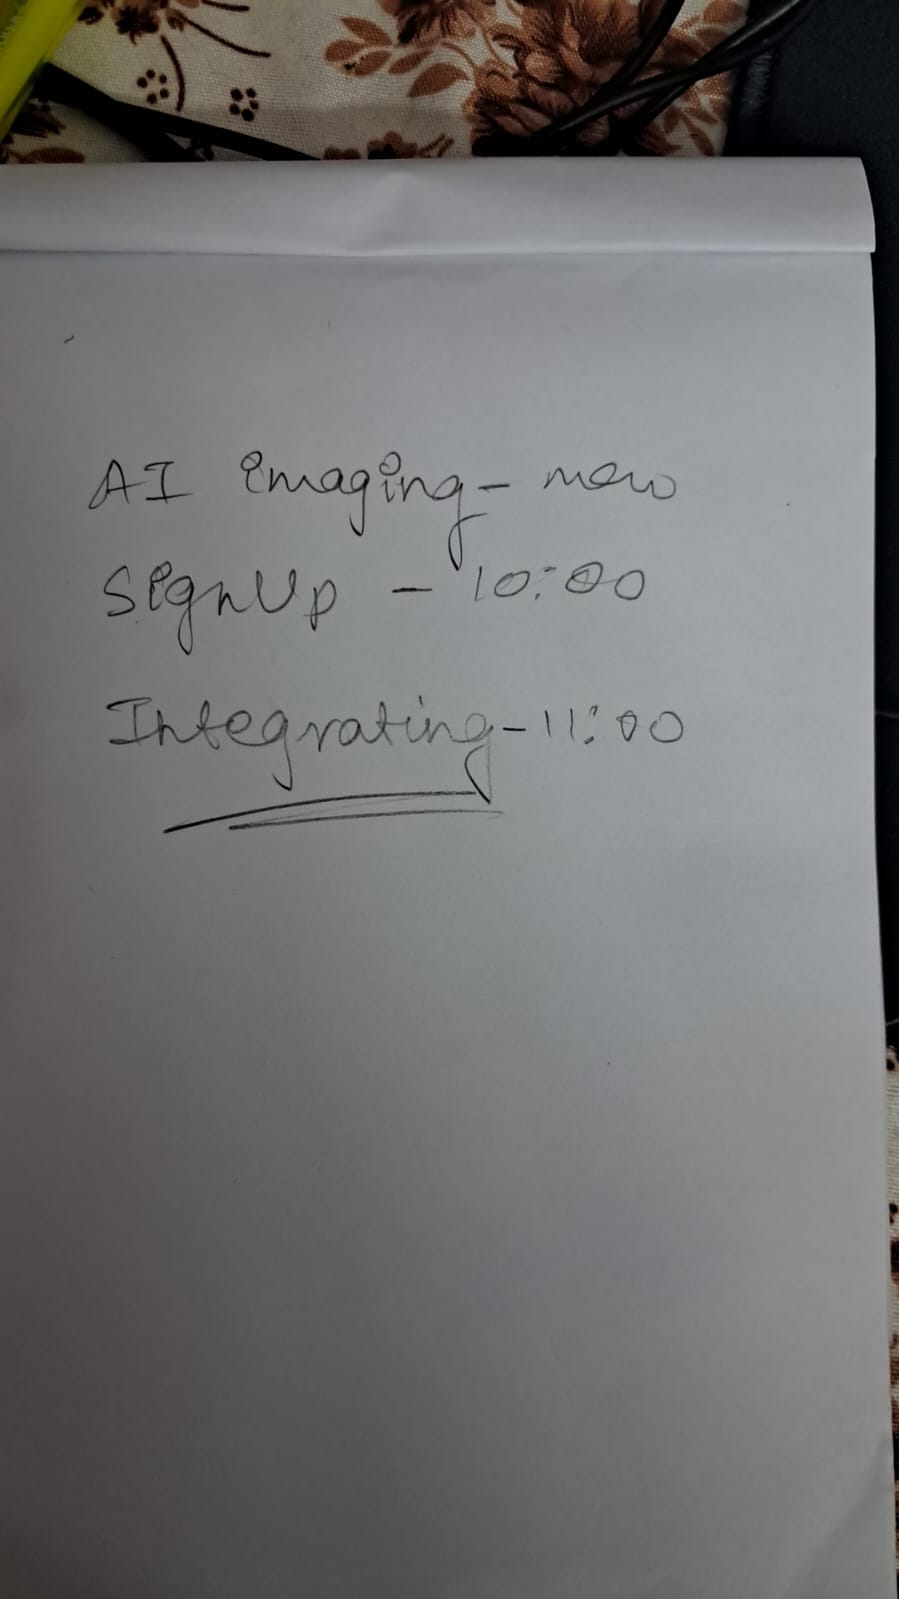 AI imaging - new
SignUp - 10:00
Integrating - 11:00